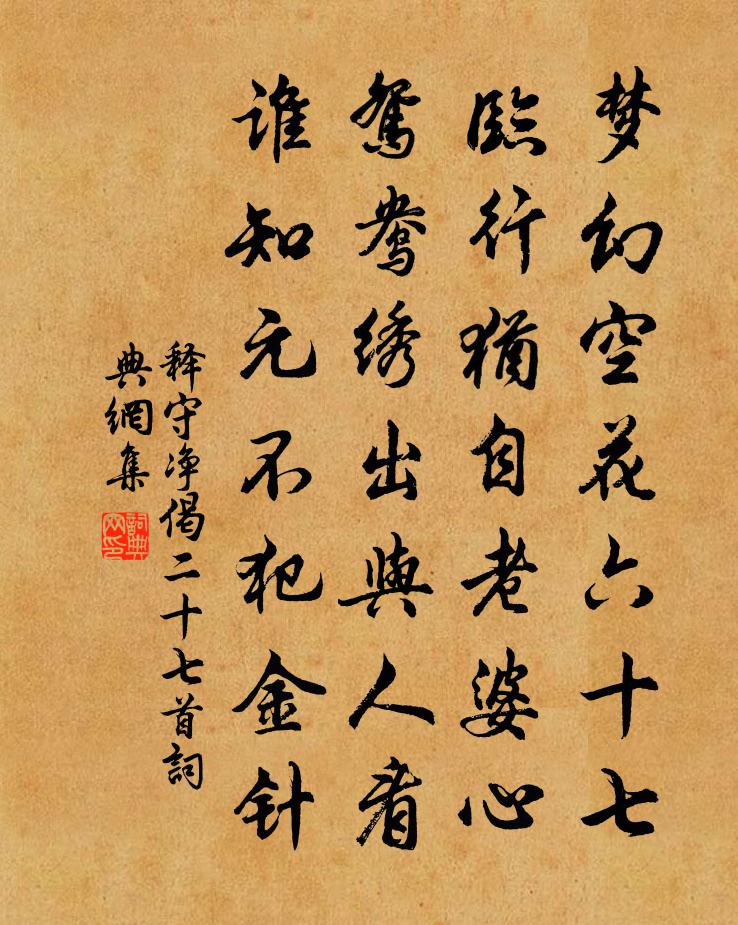 梦幻空花六十七
臨行猶自老婆心
鸳鸯绣出與人看
谁知元不犯金针
释守净偈二十七首詞
典網集
詞典网印